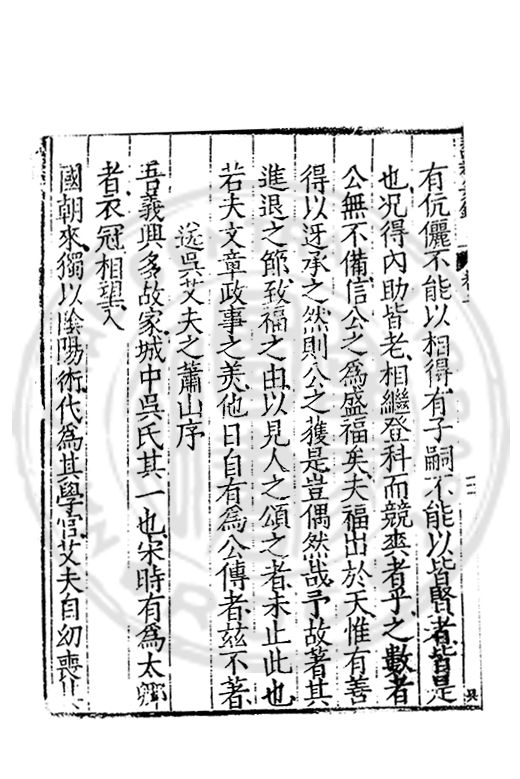 有伉儷不能以相得有子嗣不能以皆賢者皆是
也况得內助皆老相繼登科而競爽者乎之數者
公無不備信公之為盛福矣夫福出於天惟有善
得以迓承之然則公之獲是豈偶然哉予故著其
進退之節致福之由以見人之頌之者未止此也
若夫文章政事之美他日自有為公傳者茲不著
送吳艾夫之蕭山序
吾義興多故家城中吳氏其一也宋時有為太卿
者衣冠相望入
國朝來獨以陰陽術代為其學官艾夫自幼喪其